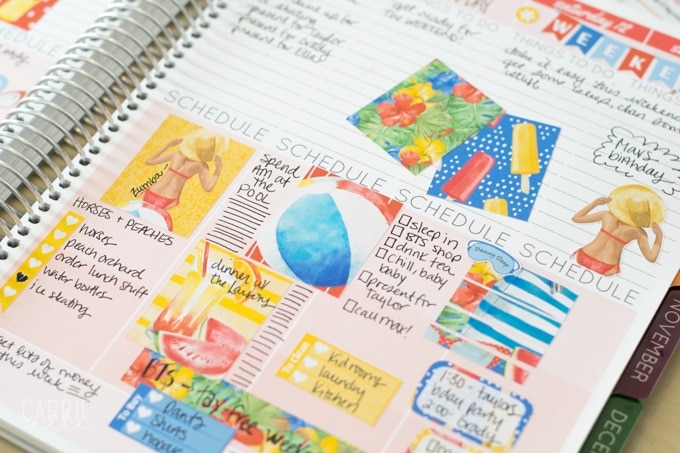 present for Taylor
get ready for
THE WEEKEND!
THINGS TO DO
Saturday 12
WEEKE
THINGS TO DO
THINGS
take it easy this weekend
get some
Max's
birthday
SCHEDULE
SCHEDULE SCHEDULE SCHEDULE SCHEDULE SCHEDULE
Zumba
HORSES + PEACHES
horses
peach orchard
order lunch stuff
water bottles
ice skating
spend
AM at
the
POOL
dinner w/
the
sleep in
BTS shop
drink tea
chill, baby
baby
present for
Taylor
call max!
to clean
kid rooms
laundry
kitchen
1:30 - taylors
bday party
2:00 - brody
lots of money
this week
BTS - tax free week
to buy
pants
shirts
hoodies
NOVEMBER
DECE
CARRIE
elle